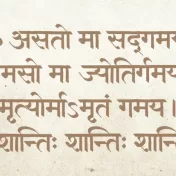 असतो मा सद्गमय
मसो मा ज्योतिर्गमय
मृत्योर्माऽमृतं गमय ।
शान्तिः शान्तिः शान्ति